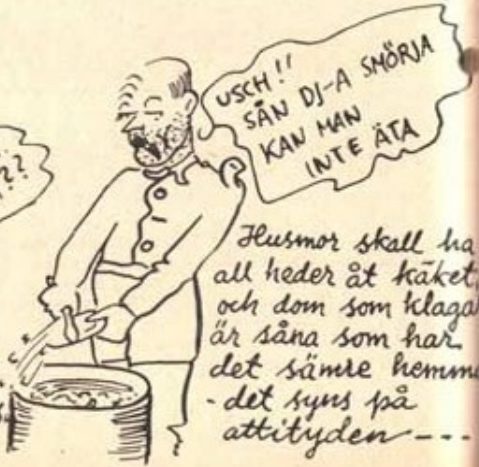 USCH!!
SÅN DJ-A SMÖRJA
KAN MAN
INTE ÄTA
??
Husmor skall ha
all heder åt käket,
och dom som klagar
är såna som har
det sämre hemma
- det syns på
attityden ---